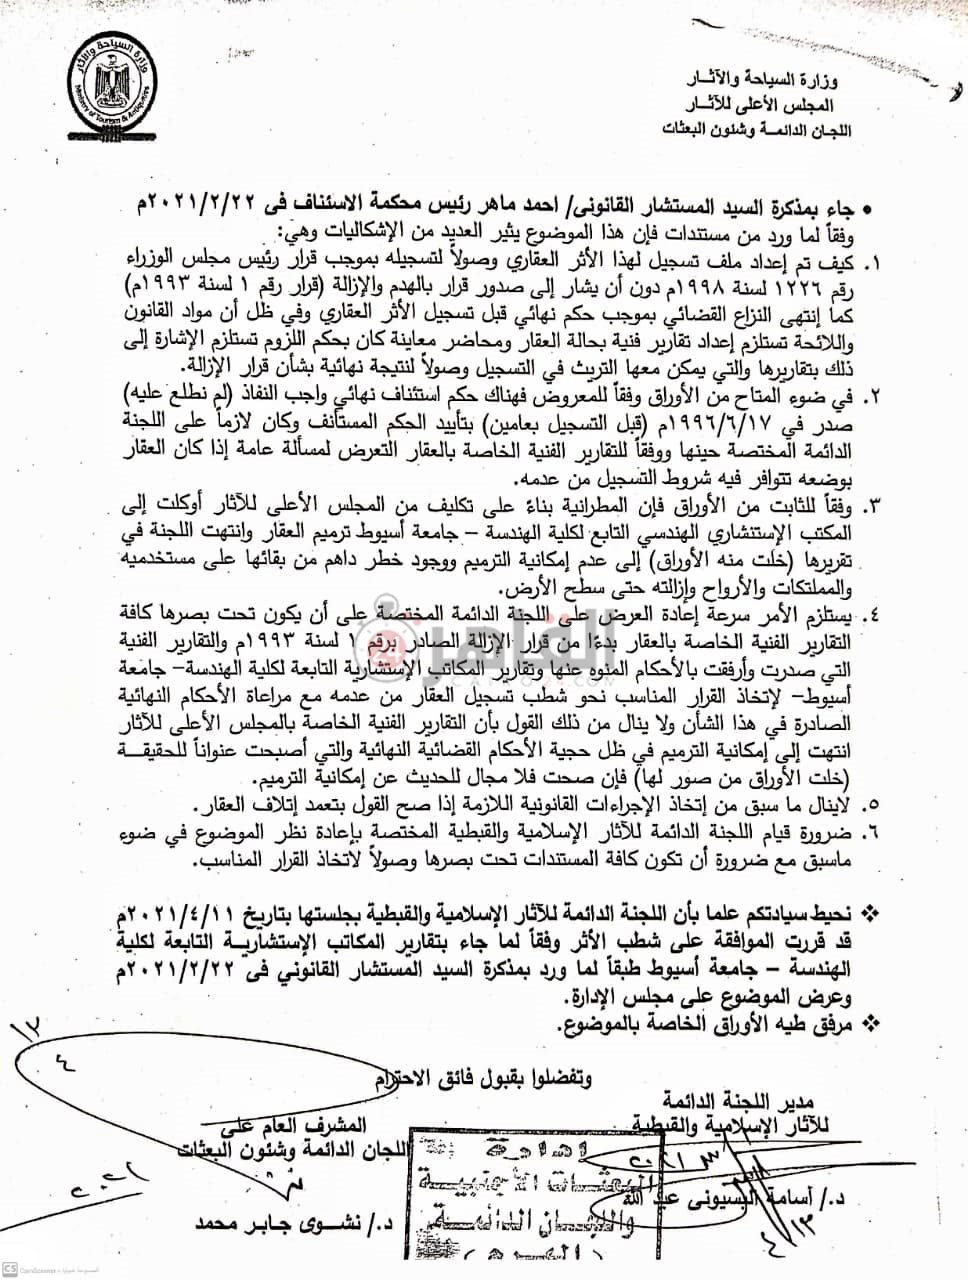 وزارة السياحة والآثار
Ministry of Tourism & Antiquities
وزارة السياحة والآثـار
المجلس الأعلى للآثـار
اللجان الدائمـة وشئون البعثات
• جاء بمذكرة السيد المستشار القانونى/ احمد ماهر رئيس محكمة الاسئناف فى ٢٠٢١/٢/٢٢م
وفقاً لما ورد من مستندات فإن هذا الموضوع يثير العديد من الإشكاليات وهي:
١. كيف تم إعداد ملف تسجيل لهذا الأثر العقاري وصولاً لتسجيله بموجب قرار رئيس مجلس الوزراء
رقم ١٢٢٦ لسنة ١٩٩٨م دون أن يشار إلى صدور قرار بالهدم والإزالة (قرار رقم ١ لسنة ١٩٩٣م)
كما إنتهى النزاع القضائي بموجب حكم نهائي قبل تسجيل الأثر العقاري وفي ظل أن مواد القانون
واللائحة تستلزم إعداد تقارير فنية بحالة العقار ومحاضر معاينة كان بحكم اللزوم تستلزم الإشارة إلى
ذلك بتقاريرها والتي يمكن معها التريث في التسجيل وصولاً لنتيجة نهائية بشأن قرار الإزالة.
٢. في ضوء المتاح من الأوراق وفقاً للمعروض فهناك حكم استئناف نهائي واجب النفاذ (لم نطلع عليه)
صدر في ١٩٩٦/٦/١٧م (قبل التسجيل بعامين) بتأييد الحكم المستأنف وكان لازماً على اللجنة
الدائمة المختصة حينها ووفقاً للتقارير الفنية الخاصة بالعقار التعرض لمسألة عامة إذا كان العقار
بوضعه تتوافر فيه شروط التسجيل من عدمه.
٣. وفقاً للثابت من الأوراق فإن المطرانية بناءً على تكليف من المجلس الأعلى للآثار أوكلت إلى
المكتب الإستشاري الهندسي التابع لكلية الهندسة – جامعة أسيوط ترميم العقار وانتهت اللجنة في
تقريرها (خلت منه الأوراق) إلى عدم إمكانية الترميم ووجود خطر داهم من بقائها على مستخدميه
والممتلكات والأرواح وإزالته حتى سطح الأرض.
٤. يستلزم الأمر سرعة إعادة العرض على اللجنة الدائمة المختصة على أن يكون تحت بصرها كافة
التقارير الفنية الخاصة بالعقار بدءًا من قرار الإزالة الصادر برقم ١ لسنة ١٩٩٣م والتقارير الفنية
التي صدرت وأرفقت بالأحكام المنوه عنها وتقارير المكاتب الإستشارية التابعة لكلية الهندسة– جامعة
أسيوط– لإتخاذ القرار المناسب نحو شطب تسجيل العقار من عدمه مع مراعاة الأحكام النهائية
الصادرة في هذا الشأن ولا ينال من ذلك القول بأن التقارير الفنية الخاصة بالمجلس الأعلى للآثار
انتهت إلى إمكانية الترميم في ظل حجية الأحكام القضائية النهائية والتي أصبحت عنواناً للحقيقة
(خلت الأوراق من صور لها) فإن صحت فلا مجال للحديث عن إمكانية الترميم.
٥. لاينال ما سبق من إتخاذ الإجراءات القانونية اللازمة إذا صح القول بتعمد إتلاف العقار.
٦. ضرورة قيام اللجنة الدائمة للآثار الإسلامية والقبطية المختصة بإعادة نظر الموضوع في ضوء
ماسبق مع ضرورة أن تكون كافة المستندات تحت بصرها وصولاً لاتخاذ القرار المناسب.
❖ نحيط سيادتكم علما بأن اللجنة الدائمة للآثار الإسلامية والقبطية بجلستها بتاريخ ٢٠٢١/٤/١١م
قد قررت الموافقة على شطب الأثر وفقاً لما جاء بتقارير المكاتب الإستشارية التابعة لكلية
الهندسة – جامعة أسيوط طبقاً لما ورد بمذكرة السيد المستشار القانوني فى ٢٠٢١/٢/٢٢م
وعرض الموضوع على مجلس الإدارة.
❖ مرفق طيه الأوراق الخاصة بالموضوع.
وتفضلوا بقبول فائق الاحترام
مدير اللجنة الدائمة
للآثار الإسلامية والقبطية
د./ أسامة البسيونى عبد الله
المشرف العام على
اللجان الدائمة وشئون البعثات
د./ نشوى جابر محمد
إدارة
البعثات الأجنبية
واللجان الدائمة
(الهرم)
١٢
٤
٢٠٢١
٤/١٣
القاهرة 24
CAIRO24.COM
CS CamScanner